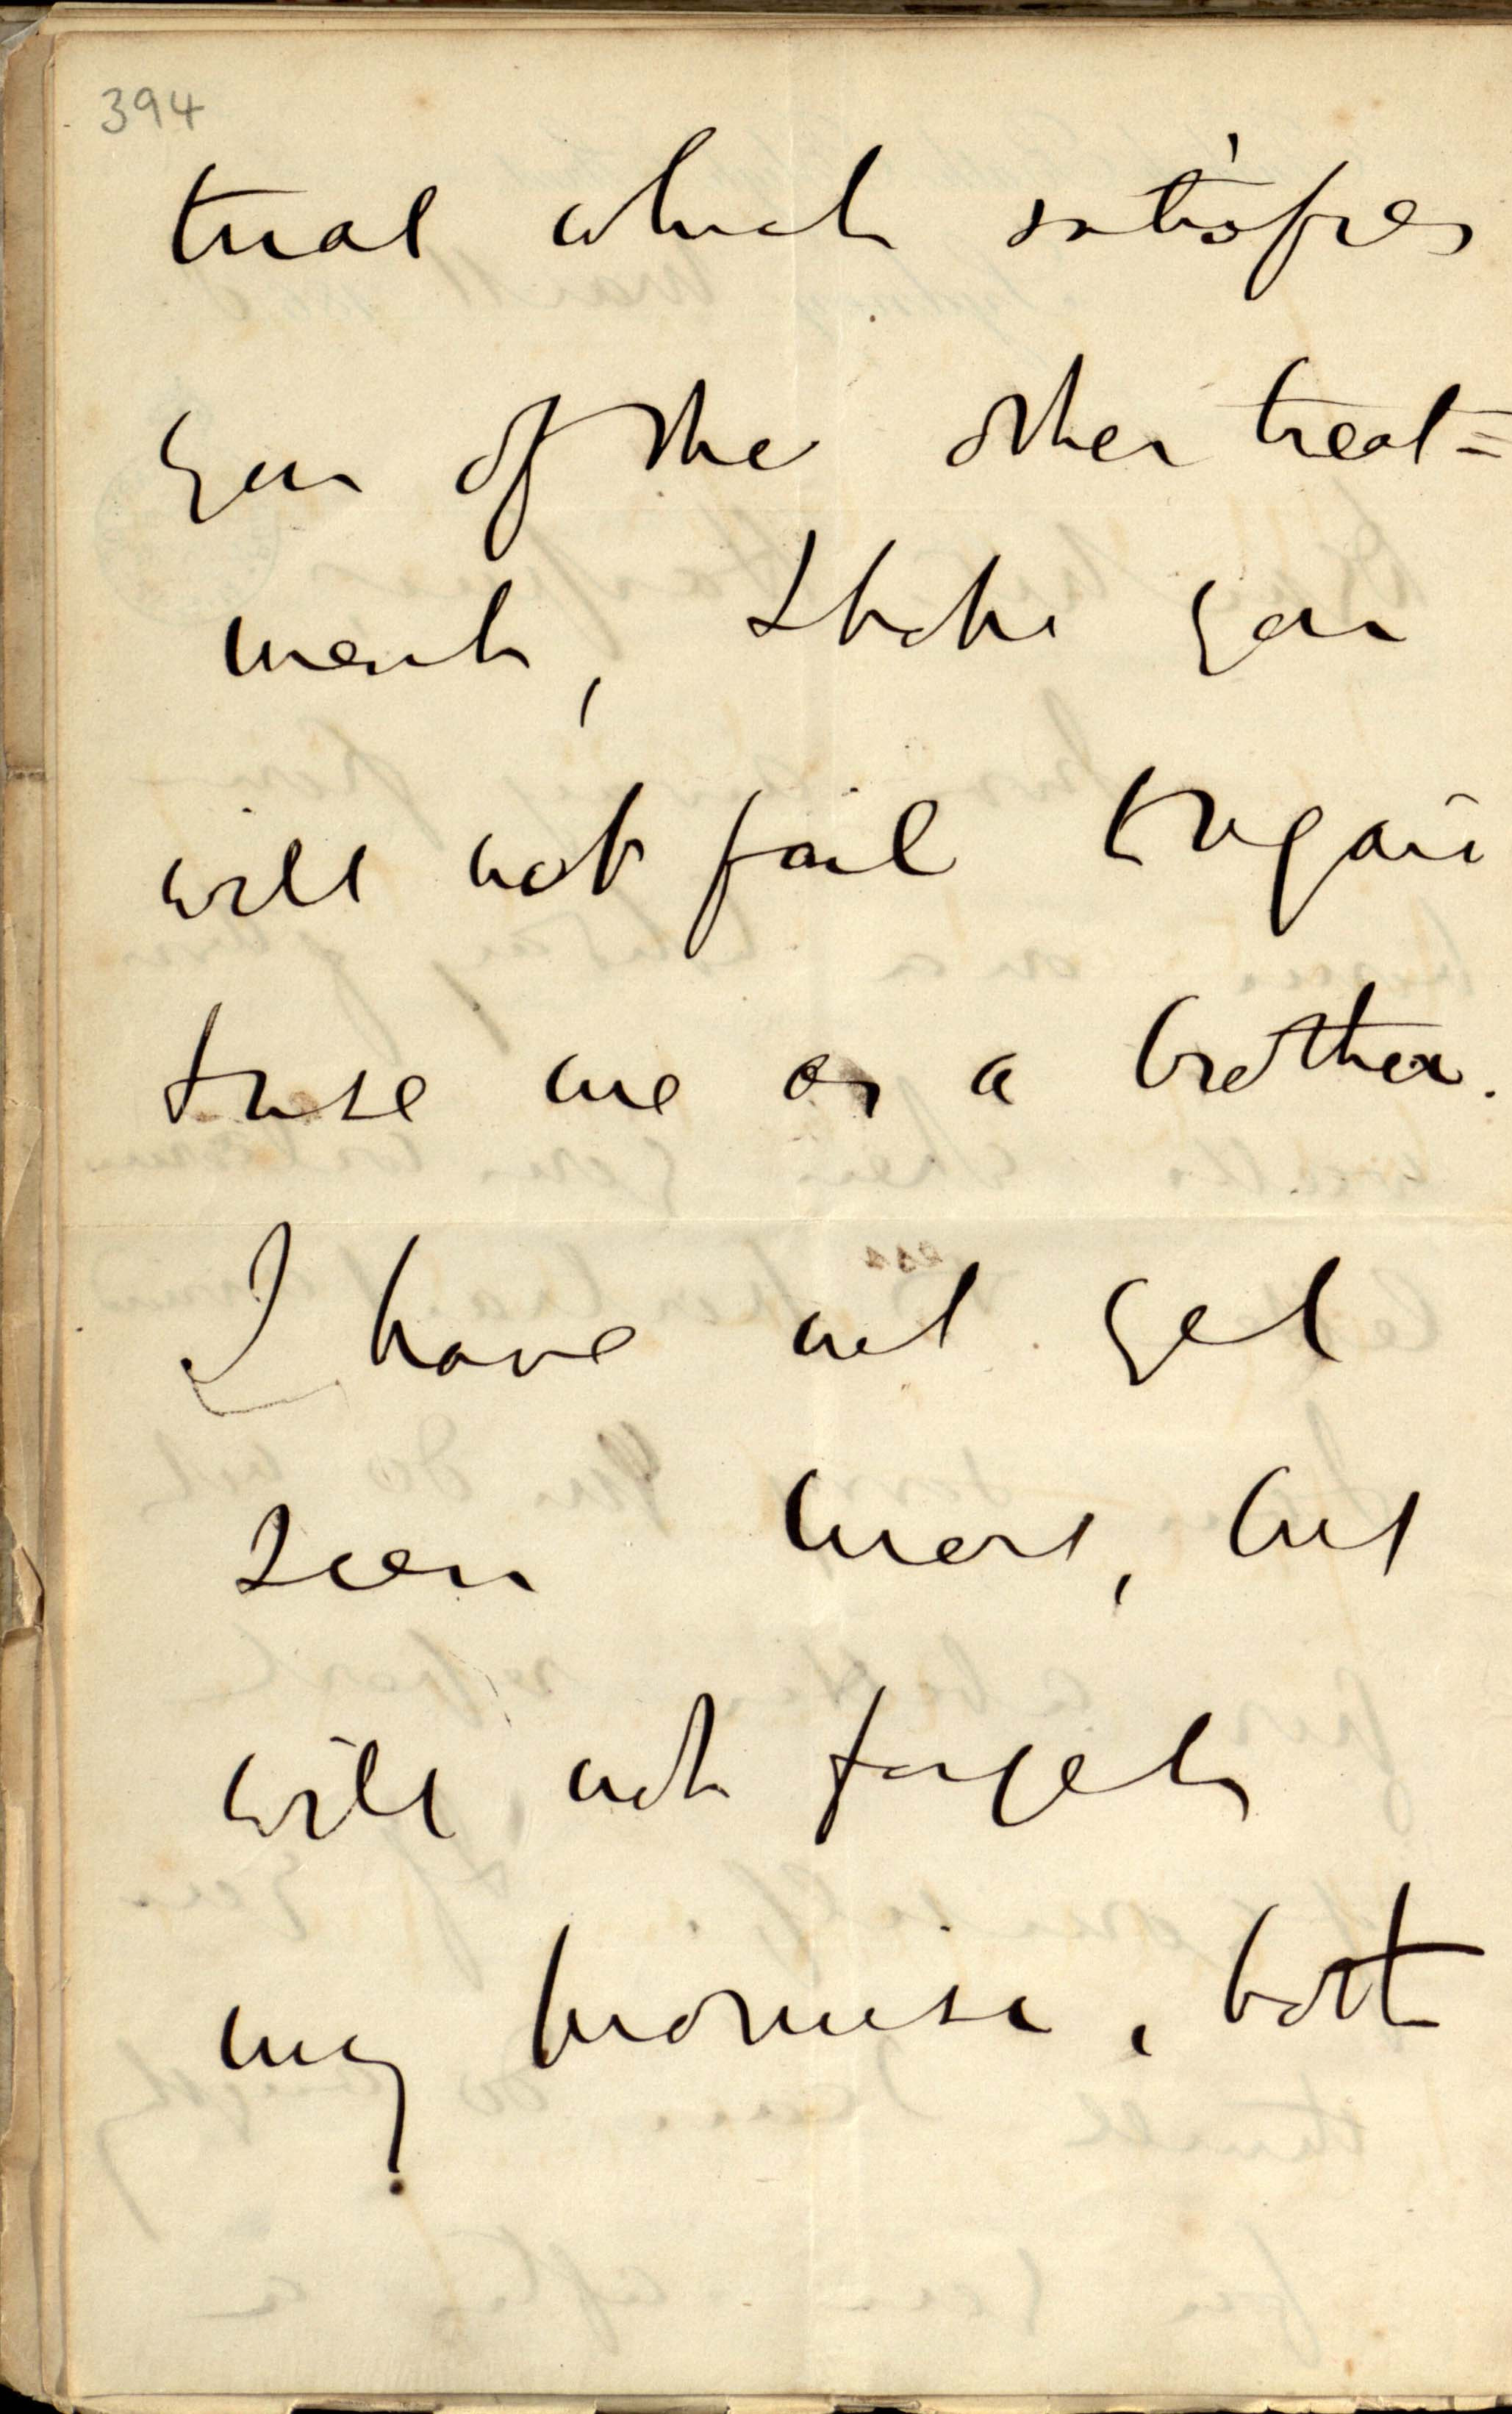 394
trial which satisfies
you of the other treat=
ment, I hope you
will not fail to again
to use me as a brother.
I have not yet
seen most, but
will not forget
my promise, both